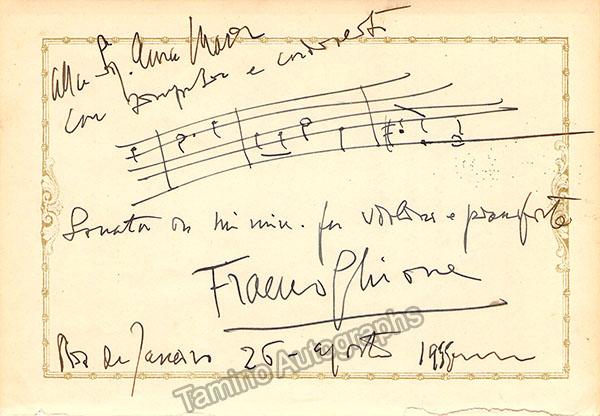 Alla Sig. Anna Maria
con e
Sonata in mi min. per violino e pianoforte
Franco Ghione
Rio de Janeiro 26 - agosto
Tamino Autographs